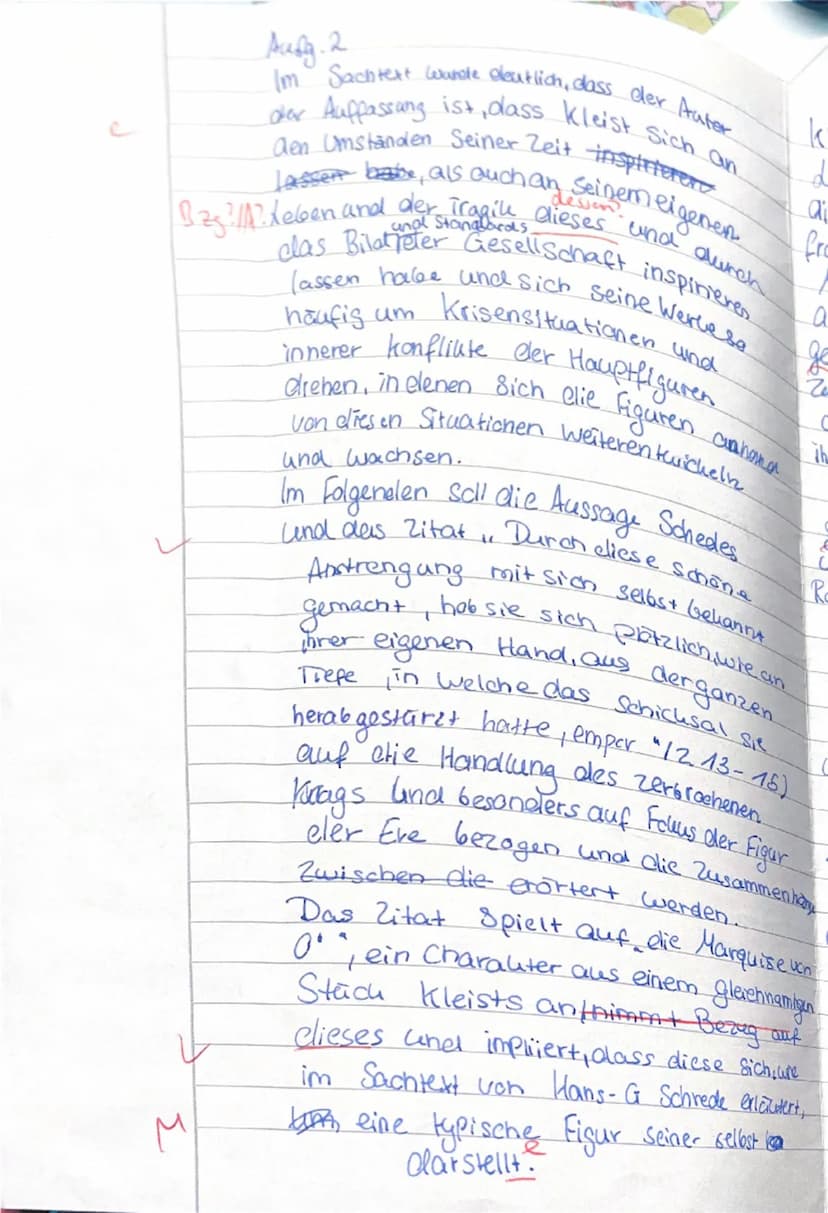 Aufg. 2
Im Sachtext wurde deutlich, dass der Autor
der Auffassung ist, dass Kleist sich an
c
den Umständen Seiner Zeit inspirieren
lassen habe, als auch an seinem eigenen
Bzg?/A? Leben und der Tragik dieses und durch
dessen?
und Standards
das Bild der Gesellschaft inspirieren
lassen habe und sich seine Werke so
häufig um Krisensituationen und
innerer Konflikte der Hauptfiguren
drehen, in denen sich die Figuren anhand
von diesen Situationen weiterentwickeln
und wachsen.
Im Folgenden soll die Aussage Schedes
und das Zitat „Durch diese schöne
Anstrengung mit sich selbst bekannt
gemacht, hob sie sich plötzlich, wie an
ihrer eigenen Hand, aus der ganzen
Tiefe, in welche das Schicksal sie
herabgestürzt hatte, empor" (Z 13-15)
auf die Handlung des zerbrochenen
Krugs und besonders auf Fokus der Figur
der Eve bezogen und die Zusammenhänge
zwischen die erörtert werden.
Das Zitat spielt auf die Marquise von
O'", ein Charakter aus einem gleichnamigen
Stück Kleists an/nimmt Bezug auf
dieses und impliziert, dass diese sich, wie
im Sachtext von Hans-G Schrede erläutert,
M
eine typische Figur seiner selbst
e
darstellt.